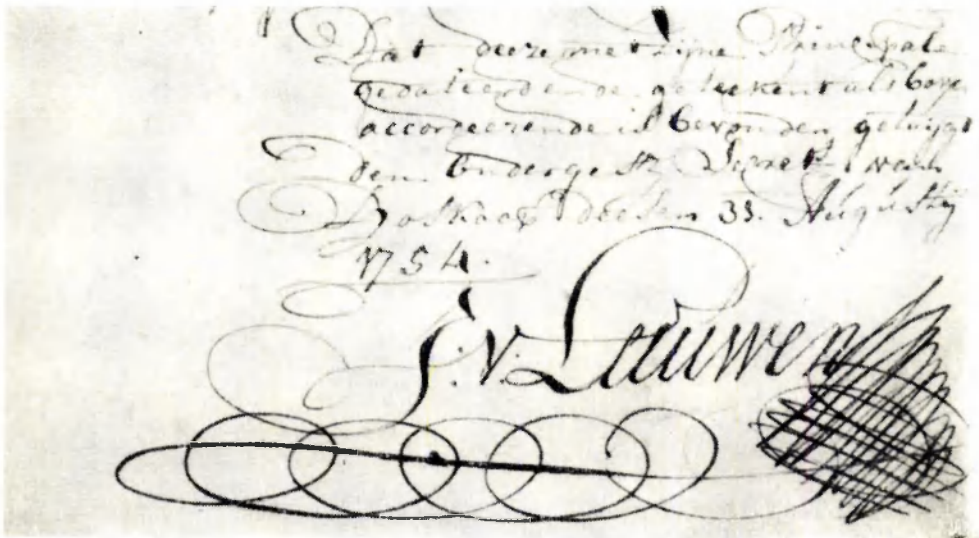 Dat deeze met zijne Principale
gedateerd ende geteekent als boven
accordeerende is bevonden getuijgt
den ondergesz Secret van
Boskoop deesen 31 Augusty
1754.
J. v. Leeuwen